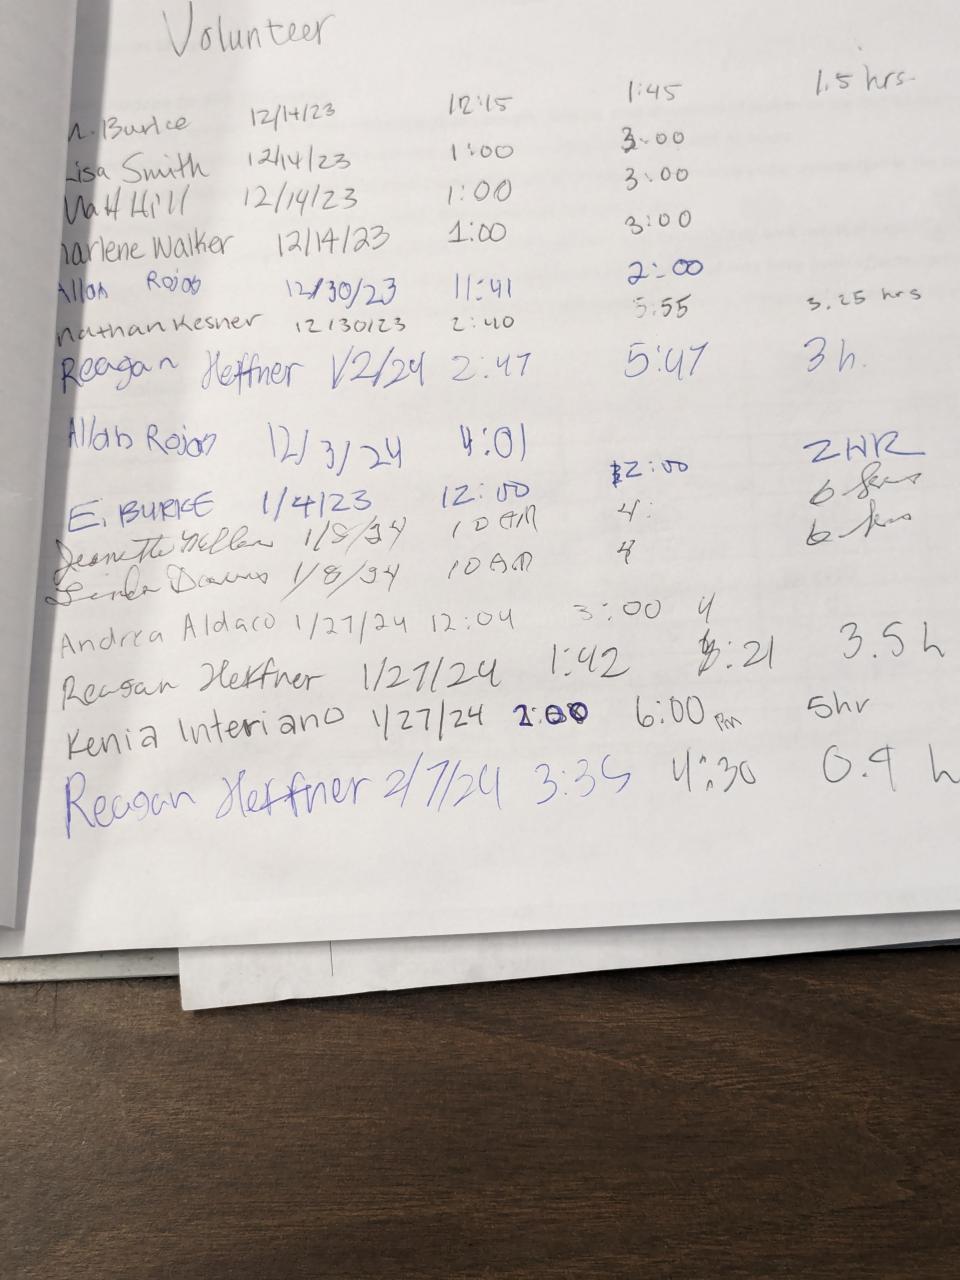 Volunteer
Burke 12/14/23 12:15 1:45 1.5 hrs.
Lisa Smith 12/14/23 1:00 3:00
Matt Hill 12/14/23 1:00 3:00
harlene Walker 12/14/23 1:00 3:00
Allan Rojas 12/30/23 11:41 2:00
nathan Kesner 12/30/23 2:40 5:55 3.25 hrs
Reagan Heffner 1/2/24 2:47 5:47 3 h.
Allan Rojas 12/3/24 4:01
E. BURKE 1/4/23 12:00 2:00 2HR
Jeanette 1/8/24 10 AM 4: 6 hrs
Linda 1/8/24 10 AM 4 6 hrs
Andrea Aldaco 1/27/24 12:04 3:00 4
Reagan Heffner 1/27/24 1:42 5:21 3.5 h
Kenia Interiano 1/27/24 1:00 6:00 pm 5hr
Reagan Heffner 2/7/24 3:35 4:30 0.9 h